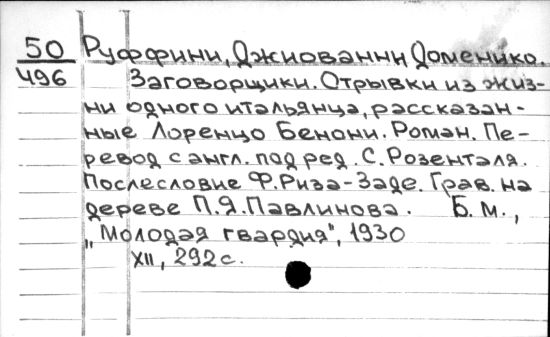 50 Руффини, Джиованни Доменико.
496 Заговорщики. Отрывки из жиз-
ни одного итальянца, рассказан-
ные Лоренцо Бенони. Роман. Пе-
ревод с англ. под ред. С. Розенталя.
Послесловие Ф. Риза-Заде. Грав. на
дереве П.Я. Павлинова. Б. м.,
„Молодая гвардия", 1930
XII, 292 с.